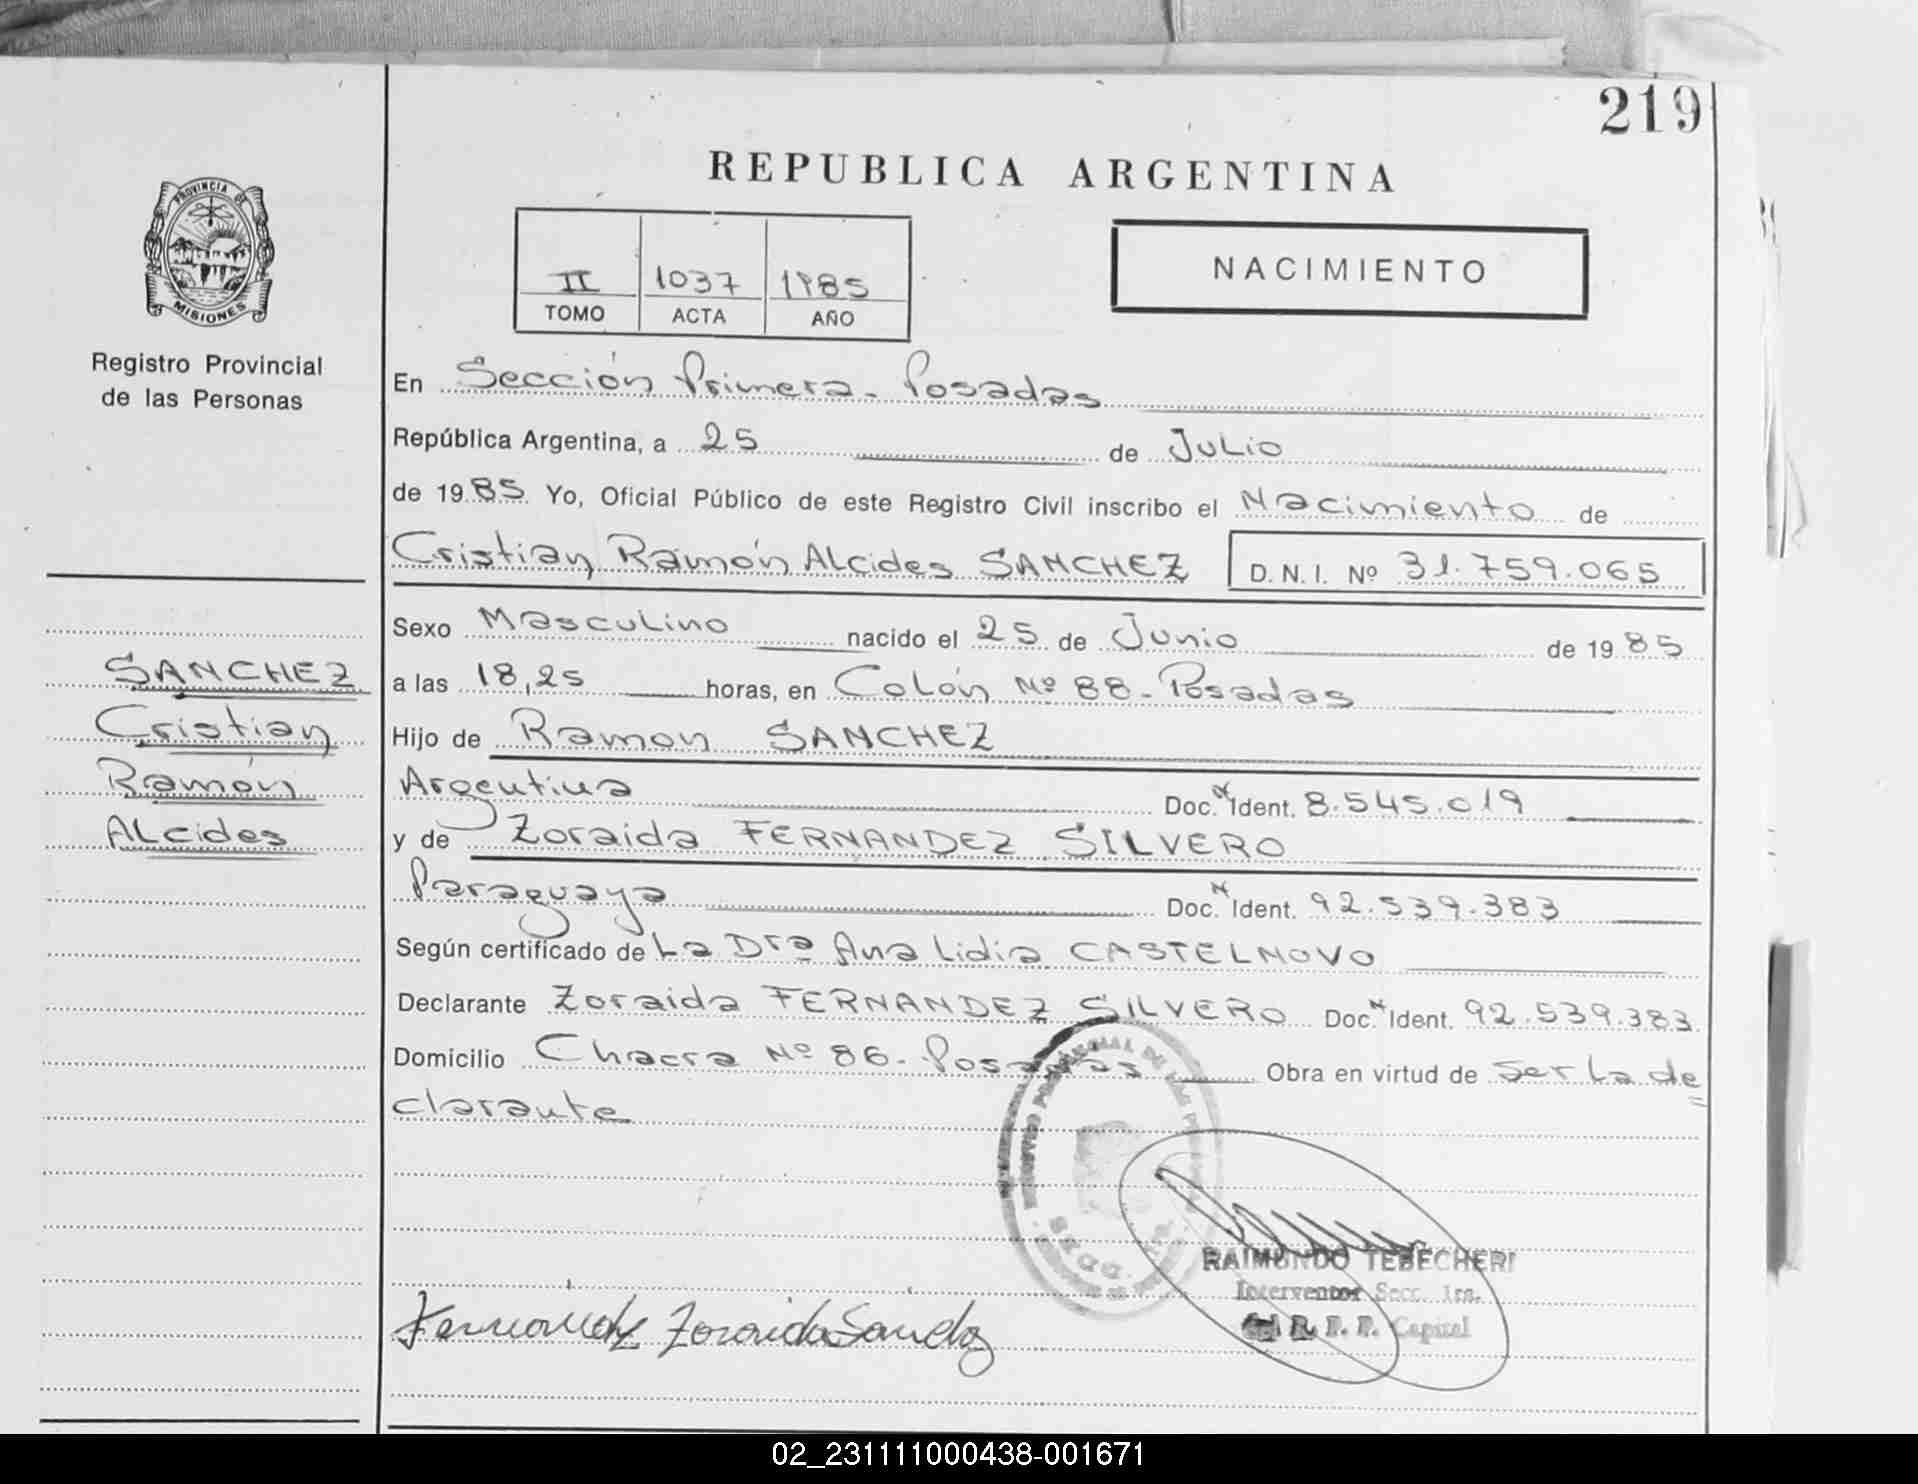 219
REPUBLICA ARGENTINA
PROVINCIA DE MISIONES
Registro Provincial
de las Personas
II 1037 1985
TOMO ACTA AÑO
NACIMIENTO
En Sección Primera - Posadas
República Argentina, a 25 de Julio
de 1985 Yo, Oficial Público de este Registro Civil inscribo el Nacimiento de
Cristian Ramón Alcides SANCHEZ D.N.I. Nº 31.759.065
Sexo Masculino nacido el 25 de Junio de 1985
a las 18,25 horas, en Colón Nº 88 - Posadas
Hijo de Ramon SANCHEZ
Argentina Doc. N Ident. 8.545.019
y de Zoraida FERNANDEZ SILVERO
Paraguaya Doc. N Ident. 92.539.383
Según certificado de La Dra Ana Lidia CASTELNOVO
Declarante Zoraida FERNANDEZ SILVERO Doc. N Ident. 92.539.383
Domicilio Chacra Nº 86 - Posadas Obra en virtud de ser la de
clarante
SANCHEZ
Cristian
Ramón
Alcides
RAIMUNDO TEBECHERI
Interventor Secc. 1ra.
R. P. P. Capital
Fernandez Zoraida Sanchez
02_231111000438-001671